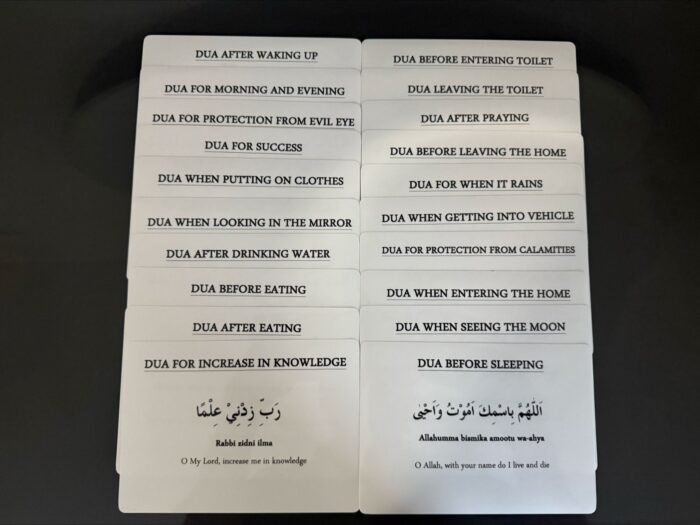 DUA AFTER WAKING UP
DUA FOR MORNING AND EVENING
DUA FOR PROTECTION FROM EVIL EYE
DUA FOR SUCCESS
DUA WHEN PUTTING ON CLOTHES
DUA WHEN LOOKING IN THE MIRROR
DUA AFTER DRINKING WATER
DUA BEFORE EATING
DUA AFTER EATING
DUA FOR INCREASE IN KNOWLEDGE
رَبِّ زِدْنِيْ عِلْمًا
Rabbi zidni ilma
O My Lord, increase me in knowledge
DUA BEFORE ENTERING TOILET
DUA LEAVING THE TOILET
DUA AFTER PRAYING
DUA BEFORE LEAVING THE HOME
DUA FOR WHEN IT RAINS
DUA WHEN GETTING INTO VEHICLE
DUA FOR PROTECTION FROM CALAMITIES
DUA WHEN ENTERING THE HOME
DUA WHEN SEEING THE MOON
DUA BEFORE SLEEPING
اَللّٰهُمَّ بِاسْمِكَ اَمُوْتُ وَاَحْيٰى
Allahumma bismika amootu wa-ahya
O Allah, with your name do I live and die